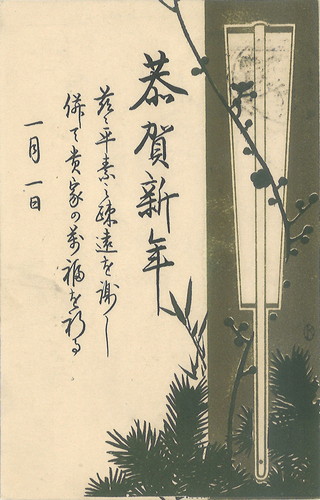 恭賀新年
茲ニ平素之疎遠を謝し
併て貴家の萬福を祈る
一月一日